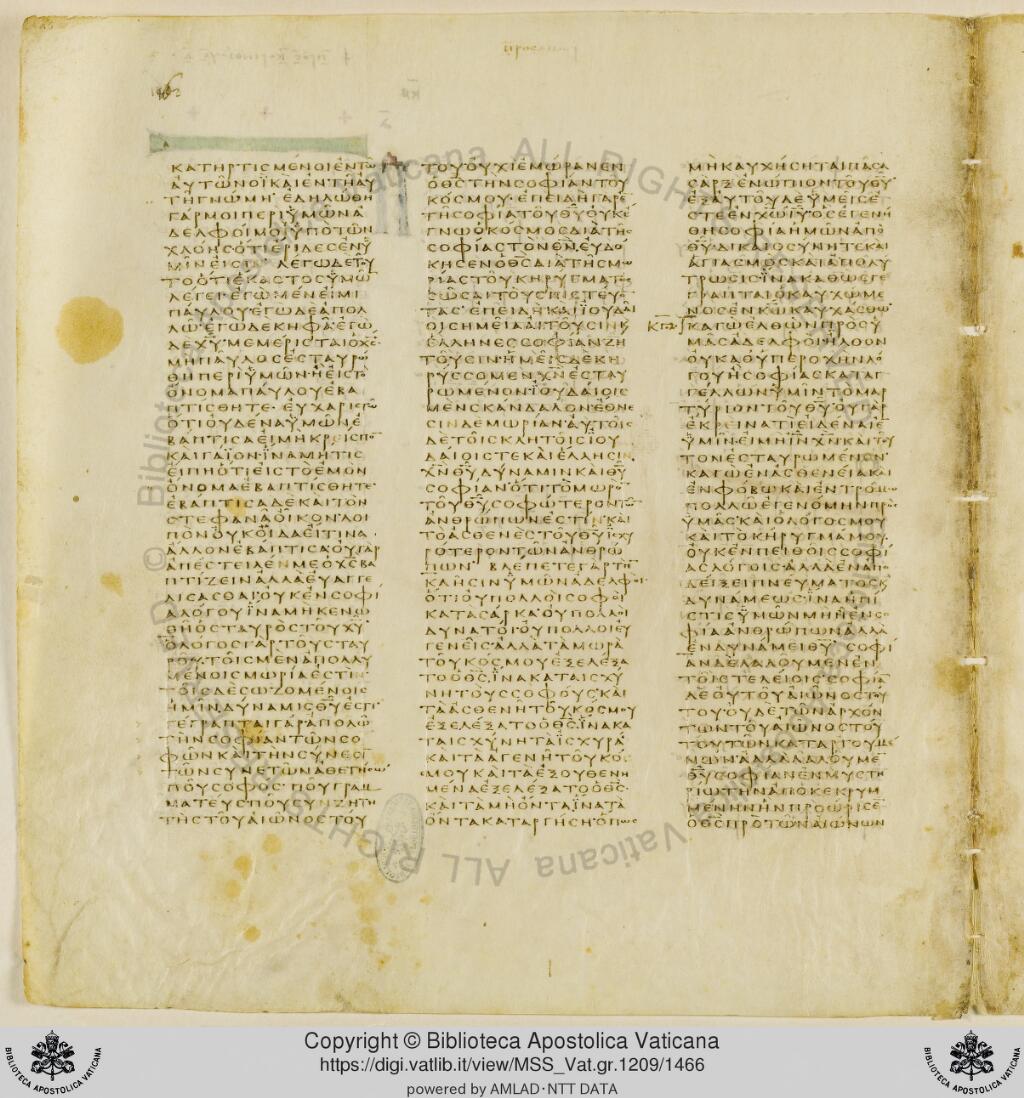 ΚΑΤΗΡΤΙϹΜΕΝΟΙΕΝΤΩ
ΑΥΤΩΝΟΙΚΑΙΕΝΤΗΑΥ
ΤΗΓΝΩΜΗ ΕΔΗΛΩΘΗ
ΓΑΡΜΟΙΠΕΡΙΥΜΩΝΑ
ΔΕΛΦΟΙΜΟΙΥΠΟΤΩΝ
ΧΛΟΗϹΟΤΙΕΡΙΔΕϹΕΝΥ
ΜΙΝΕΙϹΙ ΛΕΓΩΔΕΤΟΥ
ΤΟΟΤΙΕΚΑϹΤΟϹΥΜΩ
ΛΕΓΕΙΕΓΩΜΕΝΕΙΜΙ
ΠΑΥΛΟΥΕΓΩΔΕΑΠΟΛ
ΛΩ ΕΓΩΔΕΚΗΦΑ ΕΓΩ
ΔΕΧΥ ΜΕΜΕΡΙϹΤΑΙΟΧϹ
ΜΗΠΑΥΛΟϹΕϹΤΑΥΡΩ
ΘΗΠΕΡΙΥΜΩΝΗΕΙϹΤΟ
ΟΝΟΜΑΠΑΥΛΟΥΕΒΑ
ΠΤΙϹΘΗΤΕ ΕΥΧΑΡΙϹΤΩ
ΟΤΙΟΥΔΕΝΑΥΜΩΝΕ
ΒΑΠΤΙϹΑΕΙΜΗΚΡΕΙϹΠΟ
ΚΑΙΓΑΙΟΝ ΙΝΑΜΗΤΙϹ
ΕΙΠΗΟΤΙΕΙϹΤΟΕΜΟΝ
ΟΝΟΜΑΕΒΑΠΤΙϹΘΗΤΕ
ΕΒΑΠΤΙϹΑΔΕΚΑΙΤΟΝ
ϹΤΕΦΑΝΑΟΙΚΟΝΛΟΙ
ΠΟΝΟΥΚΟΙΔΑΕΙΤΙΝΑ
ΑΛΛΟΝΕΒΑΠΤΙϹΑΟΥΓΑΡ
ΑΠΕϹΤΕΙΛΕΝΜΕΟΧϹΒΑ
ΠΤΙΖΕΙΝΑΛΛΑΕΥΑΓΓΕ
ΛΙϹΑϹΘΑΙ ΟΥΚΕΝϹΟΦΙ
ΑΛΟΓΟΥΙΝΑΜΗΚΕΝΩ
ΘΗΟϹΤΑΥΡΟϹΤΟΥΧΥ
ΟΛΟΓΟϹΓΑΡΤΟΥϹΤΑΥ
ΡΟΥΤΟΙϹΜΕΝΑΠΟΛΛΥ
ΜΕΝΟΙϹΜΩΡΙΑΕϹΤΙΝ
ΤΟΙϹΔΕϹΩΖΟΜΕΝΟΙϹ
ΗΜΙΝΔΥΝΑΜΙϹΘΥΕϹΤΙ
ΓΕΓΡΑΠΤΑΙΓΑΡΑΠΟΛΩ
ΤΗΝϹΟΦΙΑΝΤΩΝϹΟ
ΦΩΝΚΑΙΤΗΝϹΥΝΕϹΙ
ΤΩΝϹΥΝΕΤΩΝΑΘΕΤΗϹΩ
ΠΟΥϹΟΦΟϹ ΠΟΥΓΡΑΜ
ΜΑΤΕΥϹΠΟΥϹΥΝΖΗΤΗ
ΤΗϹΤΟΥΑΙΩΝΟϹΤΟΥ
ΤΟΥΟΥΧΙΕΜΩΡΑΝΕΝ
ΟΘϹΤΗΝϹΟΦΙΑΝΤΟΥ
ΚΟϹΜΟΥ ΕΠΕΙΔΗΓΑΡΕ
ΤΗϹΟΦΙΑΤΟΥΘΥΟΥΚΕ
ΓΝΩΟΚΟϹΜΟϹΔΙΑΤΗϹ
ϹΟΦΙΑϹΤΟΝΘΝ ΕΥΔΟ
ΚΗϹΕΝΟΘϹΔΙΑΤΗϹΜΩ
ΡΙΑϹΤΟΥΚΗΡΥΓΜΑΤΟϹ
ϹΩϹΑΙΤΟΥϹΠΙϹΤΕΥΟ
ΤΑϹ ΕΠΕΙΔΗΚΑΙΙΟΥΔΑΙ
ΟΙϹΗΜΕΙΑΑΙΤΟΥϹΙΝΚ
ΕΛΛΗΝΕϹϹΟΦΙΑΝΖΗ
ΤΟΥϹΙΝ ΗΜΕΙϹΔΕΚΗ
ΡΥϹϹΟΜΕΝΧΝΕϹΤΑΥ
ΡΩΜΕΝΟΝΙΟΥΔΑΙΟΙϹ
ΜΕΝϹΚΑΝΔΑΛΟΝΕΘΝΕ
ϹΙΝΔΕΜΩΡΙΑΝ ΑΥΤΟΙϹ
ΔΕΤΟΙϹΚΛΗΤΟΙϹΙΟΥ
ΔΑΙΟΙϹΤΕΚΑΙΕΛΛΗϹΙΝ
ΧΝΘΥΔΥΝΑΜΙΝΚΑΙΘΥ
ϹΟΦΙΑΝ ΟΤΙΤΟΜΩΡΟ
ΤΟΥΘΥϹΟΦΩΤΕΡΟΝΤΩ
ΑΝΘΡΩΠΩΝΕϹΤΙΝ ΚΑΙ
ΤΟΑϹΘΕΝΕϹΤΟΥΘΥΙϹΧΥ
ΡΟΤΕΡΟΝΤΩΝΑΝΘΡΩ
ΠΩΝ ΒΛΕΠΕΤΕΓΑΡΤΗ
ΚΛΗϹΙΝΥΜΩΝΑΔΕΛΦΟΙ
ΟΤΙΟΥΠΟΛΛΟΙϹΟΦΟΙ
ΚΑΤΑϹΑΡΚΑ ΟΥΠΟΛΛΟΙ
ΔΥΝΑΤΟΙ ΟΥΠΟΛΛΟΙΕΥ
ΓΕΝΕΙϹ ΑΛΛΑΤΑΜΩΡΑ
ΤΟΥΚΟϹΜΟΥΕΞΕΛΕΞΑ
ΤΟΟΘϹ ΙΝΑΚΑΤΑΙϹΧΥ
ΝΗΤΟΥϹϹΟΦΟΥϹ ΚΑΙ
ΤΑΑϹΘΕΝΗΤΟΥΚΟϹΜΟΥ
ΕΞΕΛΕΞΑΤΟΟΘϹ ΙΝΑΚΑ
ΤΑΙϹΧΥΝΗΤΑΙϹΧΥΡΑ
ΚΑΙΤΑΑΓΕΝΗΤΟΥΚΟϹ
ΜΟΥΚΑΙΤΑΕΞΟΥΘΕΝΗ
ΜΕΝΑΕΞΕΛΕΞΑΤΟΟΘϹ
ΚΑΙΤΑΜΗΟΝΤΑΙΝΑΤΑ
ΟΝΤΑΚΑΤΑΡΓΗϹΗ ΟΠΩϹ
ΜΗΚΑΥΧΗϹΗΤΑΙΠΑϹΑ
ϹΑΡΞΕΝΩΠΙΟΝΤΟΥΘΥ
ΕΞΑΥΤΟΥΔΕΥΜΕΙϹΕ
ϹΤΕΕΝΧΩΙΥ ΟϹΕΓΕΝΗ
ΘΗϹΟΦΙΑΗΜΩΝΑΠΟ
ΘΥΔΙΚΑΙΟϹΥΝΗΤΕΚΑΙ
ΑΓΙΑϹΜΟϹΚΑΙΑΠΟΛΥ
ΤΡΩϹΙϹ ΙΝΑΚΑΘΩϹΓΕ
ΓΡΑΠΤΑΙΟΚΑΥΧΩΜΕ
ΝΟϹΕΝΚΩΚΑΥΧΑϹΘΩ
ΚΑΓΩΕΛΘΩΝΠΡΟϹΥ
ΜΑϹΑΔΕΛΦΟΙΗΛΘΟΝ
ΟΥΚΑΘΥΠΕΡΟΧΗΝΛΟ
ΓΟΥΗϹΟΦΙΑϹΚΑΤΑΓ
ΓΕΛΛΩΝΥΜΙΝΤΟΜΑΡ
ΤΥΡΙΟΝΤΟΥΘΥ ΟΥΓΑΡ
ΕΚΡΕΙΝΑΤΙΕΙΔΕΝΑΙΕ
ΥΜΙΝΕΙΜΗΙΝΧΝΚΑΙΤΟΥ
ΤΟΝΕϹΤΑΥΡΩΜΕΝΟΝ
ΚΑΓΩΕΝΑϹΘΕΝΕΙΑΚΑΙ
ΕΝΦΟΒΩΚΑΙΕΝΤΡΟΜΩ
ΠΟΛΛΩΕΓΕΝΟΜΗΝΠΡΟϹ
ΥΜΑϹ ΚΑΙΟΛΟΓΟϹΜΟΥ
ΚΑΙΤΟΚΗΡΥΓΜΑΜΟΥ
ΟΥΚΕΝΠΕΙΘΟΙϹϹΟΦΙ
ΑϹΛΟΓΟΙϹ ΑΛΛΑΕΝΑΠΟ
ΔΕΙΞΕΙΠΝΕΥΜΑΤΟϹΚ
ΔΥΝΑΜΕΩϹΙΝΑΗΠΙ
ϹΤΙϹΥΜΩΝΜΗΗΕΝϹΟ
ΦΙΑΑΝΘΡΩΠΩΝΑΛΛΑ
ΕΝΔΥΝΑΜΕΙΘΥ ϹΟΦΙ
ΑΝΔΕΛΑΛΟΥΜΕΝΕΝ
ΤΟΙϹΤΕΛΕΙΟΙϹ ϹΟΦΙΑ
ΔΕΟΥΤΟΥΑΙΩΝΟϹΤΟΥ
ΤΟΥ ΟΥΔΕΤΩΝΑΡΧΟΝ
ΤΩΝΤΟΥΑΙΩΝΟϹΤΟΥ
ΤΟΥΤΩΝΚΑΤΑΡΓΟΥΜΕ
ΝΩΝ ΑΛΛΑΛΑΛΟΥΜΕ
ΘΥϹΟΦΙΑΝΕΝΜΥϹΤΗ
ΡΙΩΤΗΝΑΠΟΚΕΚΡΥΜ
ΜΕΝΗΝΗΝΠΡΟΩΡΙϹΕ
ΟΘϹΠΡΟΤΩΝΑΙΩΝΩΝ
Copyright © Biblioteca Apostolica Vaticana
https://digi.vatlib.it/view/MSS_Vat.gr.1209/1466
powered by AMLAD·NTT DATA
BIBLIOTECA APOSTOLICA VATICANA
BIBLIOTECA APOSTOLICA VATICANA